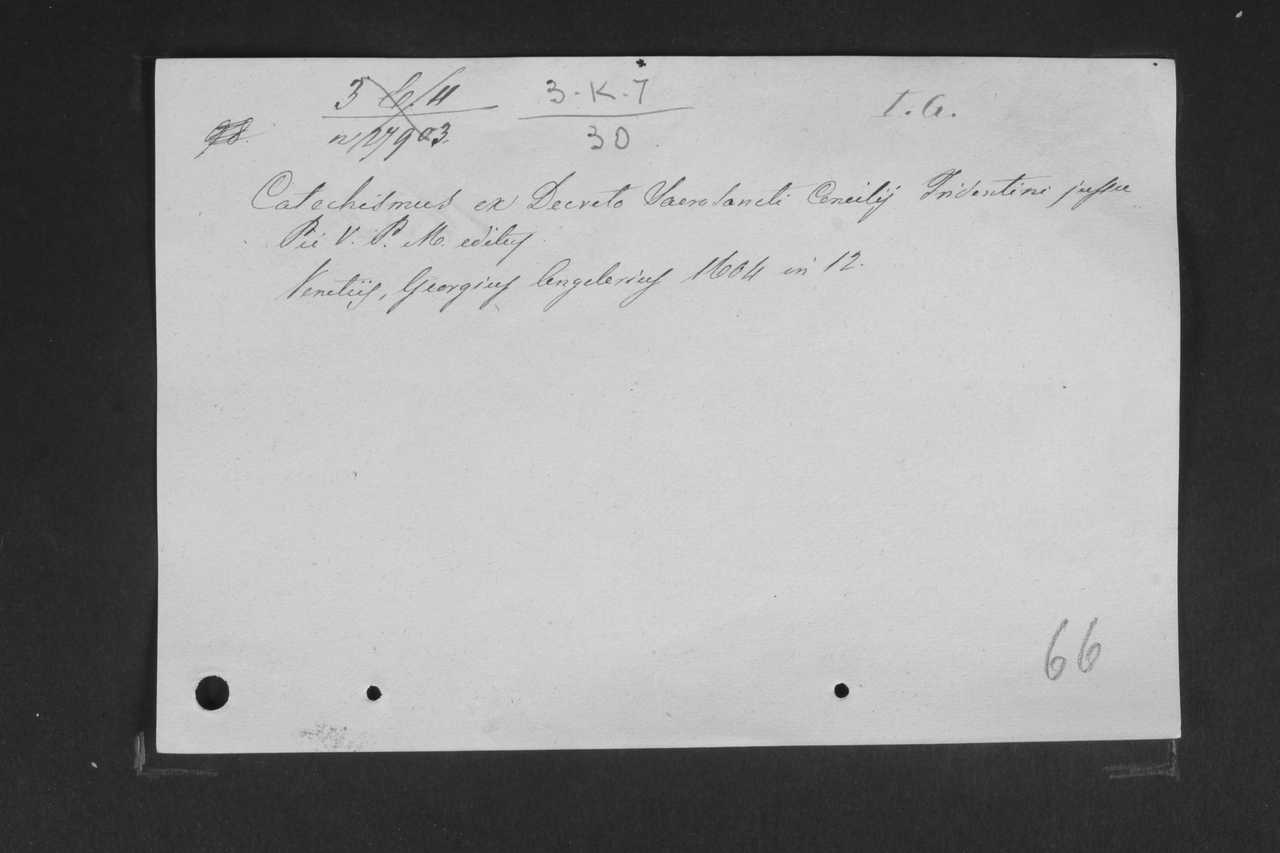 3-K-7
30
T. G.
Catechismus ex Decreto Sacrosancti Concilij Tridentini jussu
Pii V. P. M. editus
Venetiis, Georgius Angelerius 1604 in 12.
66